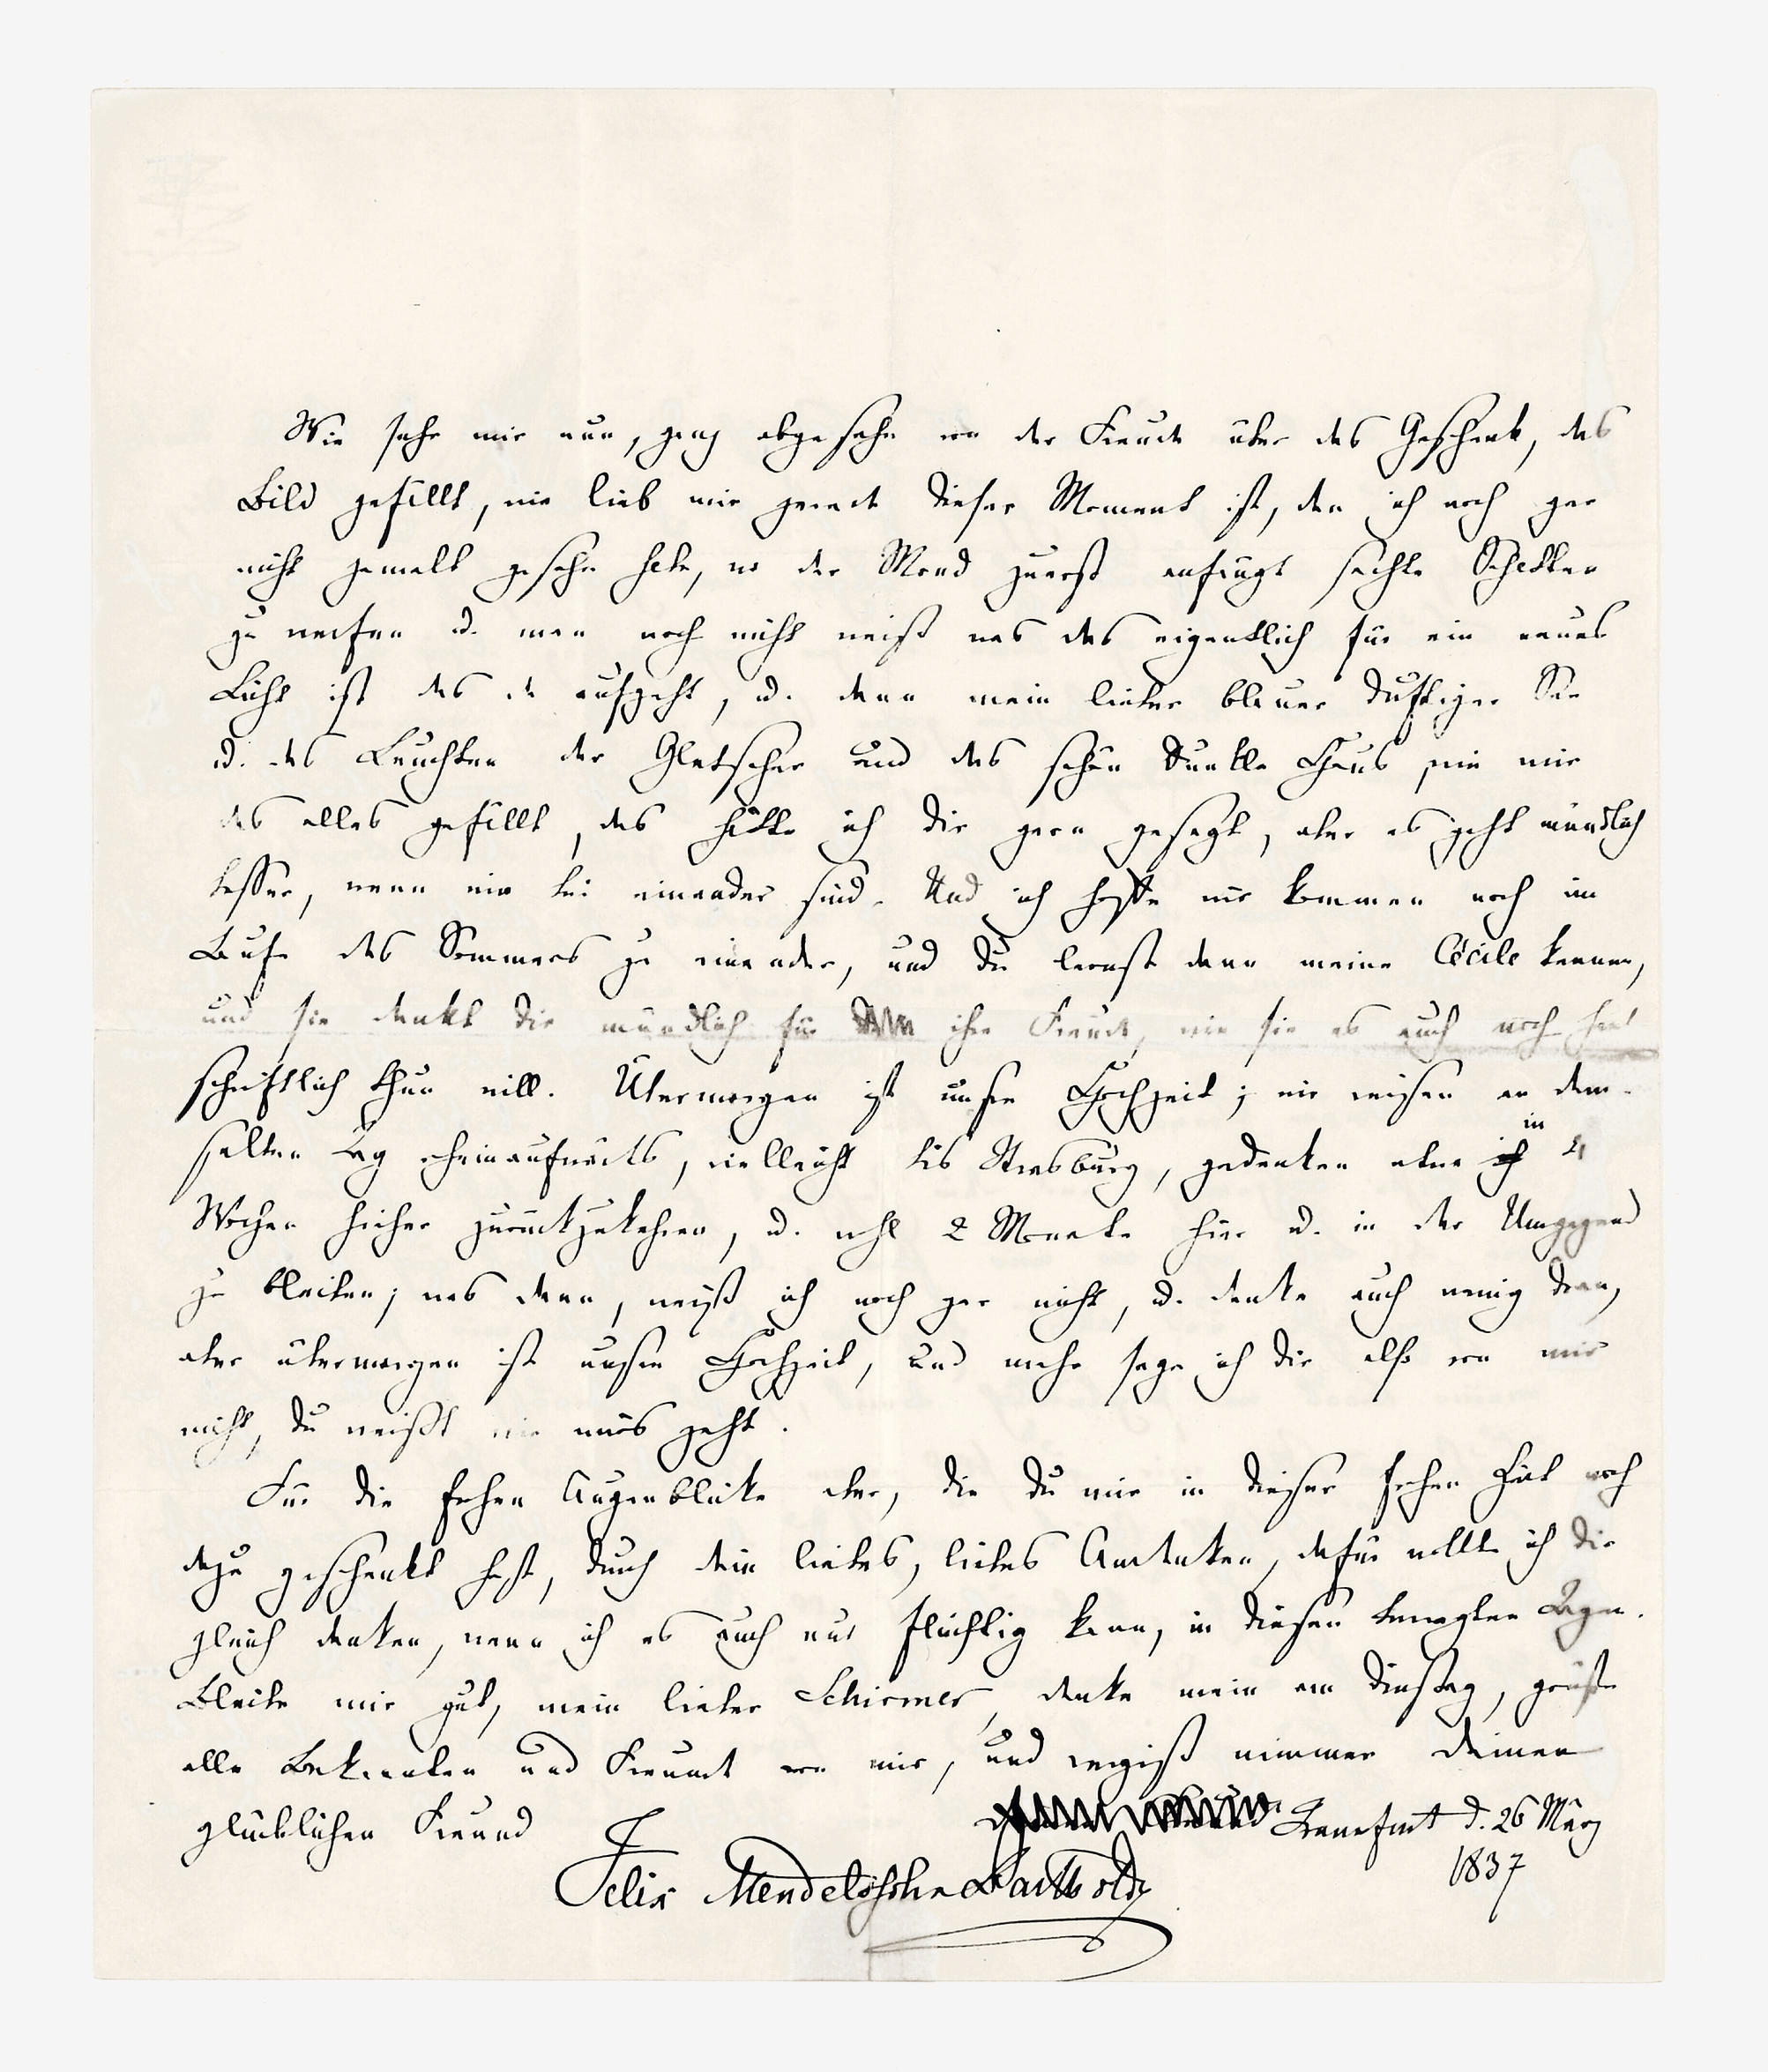 Wie sehr mir nun, ganz abgesehn von der Freude über das Geschenk, das
Bild gefällt, wie lieb mir gerade dieser Moment ist, den ich noch gar
nicht gemalt gesehn habe, wo der Mond zuerst anfängt sachte Schatten
zu werfen u. man noch nicht weiß was das eigentlich für ein neues
Licht ist das da aufgeht, u. dann mein lieber blauer duftiger See
u. das Leuchten der Gletscher und das schöne dunkle Haus, wie mir
das alles gefällt, das hätte ich dir gern gesagt, aber es geht mündlich
besser, wenn wir bei einander sind. Und ich hoffe wir kommen noch im
Laufe des Sommers zu einander, und du lernst dann meine Cécile kennen,
und sie dankt dir mündlich für ihre Freude, wie sie es auch noch heut
schriftlich thun will. Übermorgen ist unsre Hochzeit; wir reisen an dem-
selben Tag rheinaufwärts, vielleicht bis Strasburg, gedenken aber in 4
Wochen hieher zurückzukehren, u. wohl 2 Monate hier u. in der Umgegend
zu bleiben; was dann, weiß ich noch gar nicht, u. denke auch wenig dran,
aber übermorgen ist unsre Hochzeit, und mehr sage ich dir also von mir
nicht, du weißt wie mirs geht.
Für die frohen Augenblicke aber, die du mir in dieser frohen Zeit noch
dazu geschenkt hast, durch dein liebes, liebes Andenken, dafür wollte ich dir
gleich danken, wenn ich es auch nur flüchtig kann, in diesen bewegten Tagen.
Bleibe mir gut, mein lieber Schirmer, denke mein am Dinstag, grüße
alle Bekannten und Freunde von mir, und vergiß nimmer deinen
glücklichen Freund
Frankfurt d. 26 März
1837
Felix Mendelssohn Bartholdy